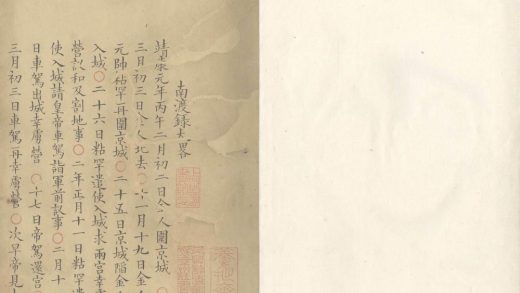 南渡錄大畧
靖康元年丙午二月初二日金人圍京城
三月初三日金人北去○十一月十九日金
元帥粘罕再圍京城○二十五日京城陷金
入城○二十六日粘罕遣使入城求兩宮幸
營議和及割地事○二年正月十一日粘罕遣
使入城請皇帝車駕詣軍前議事○二月十
日車駕出城幸虜營○十七日帝駕還宮
三月初三日車駕再幸虜營○次早帝見